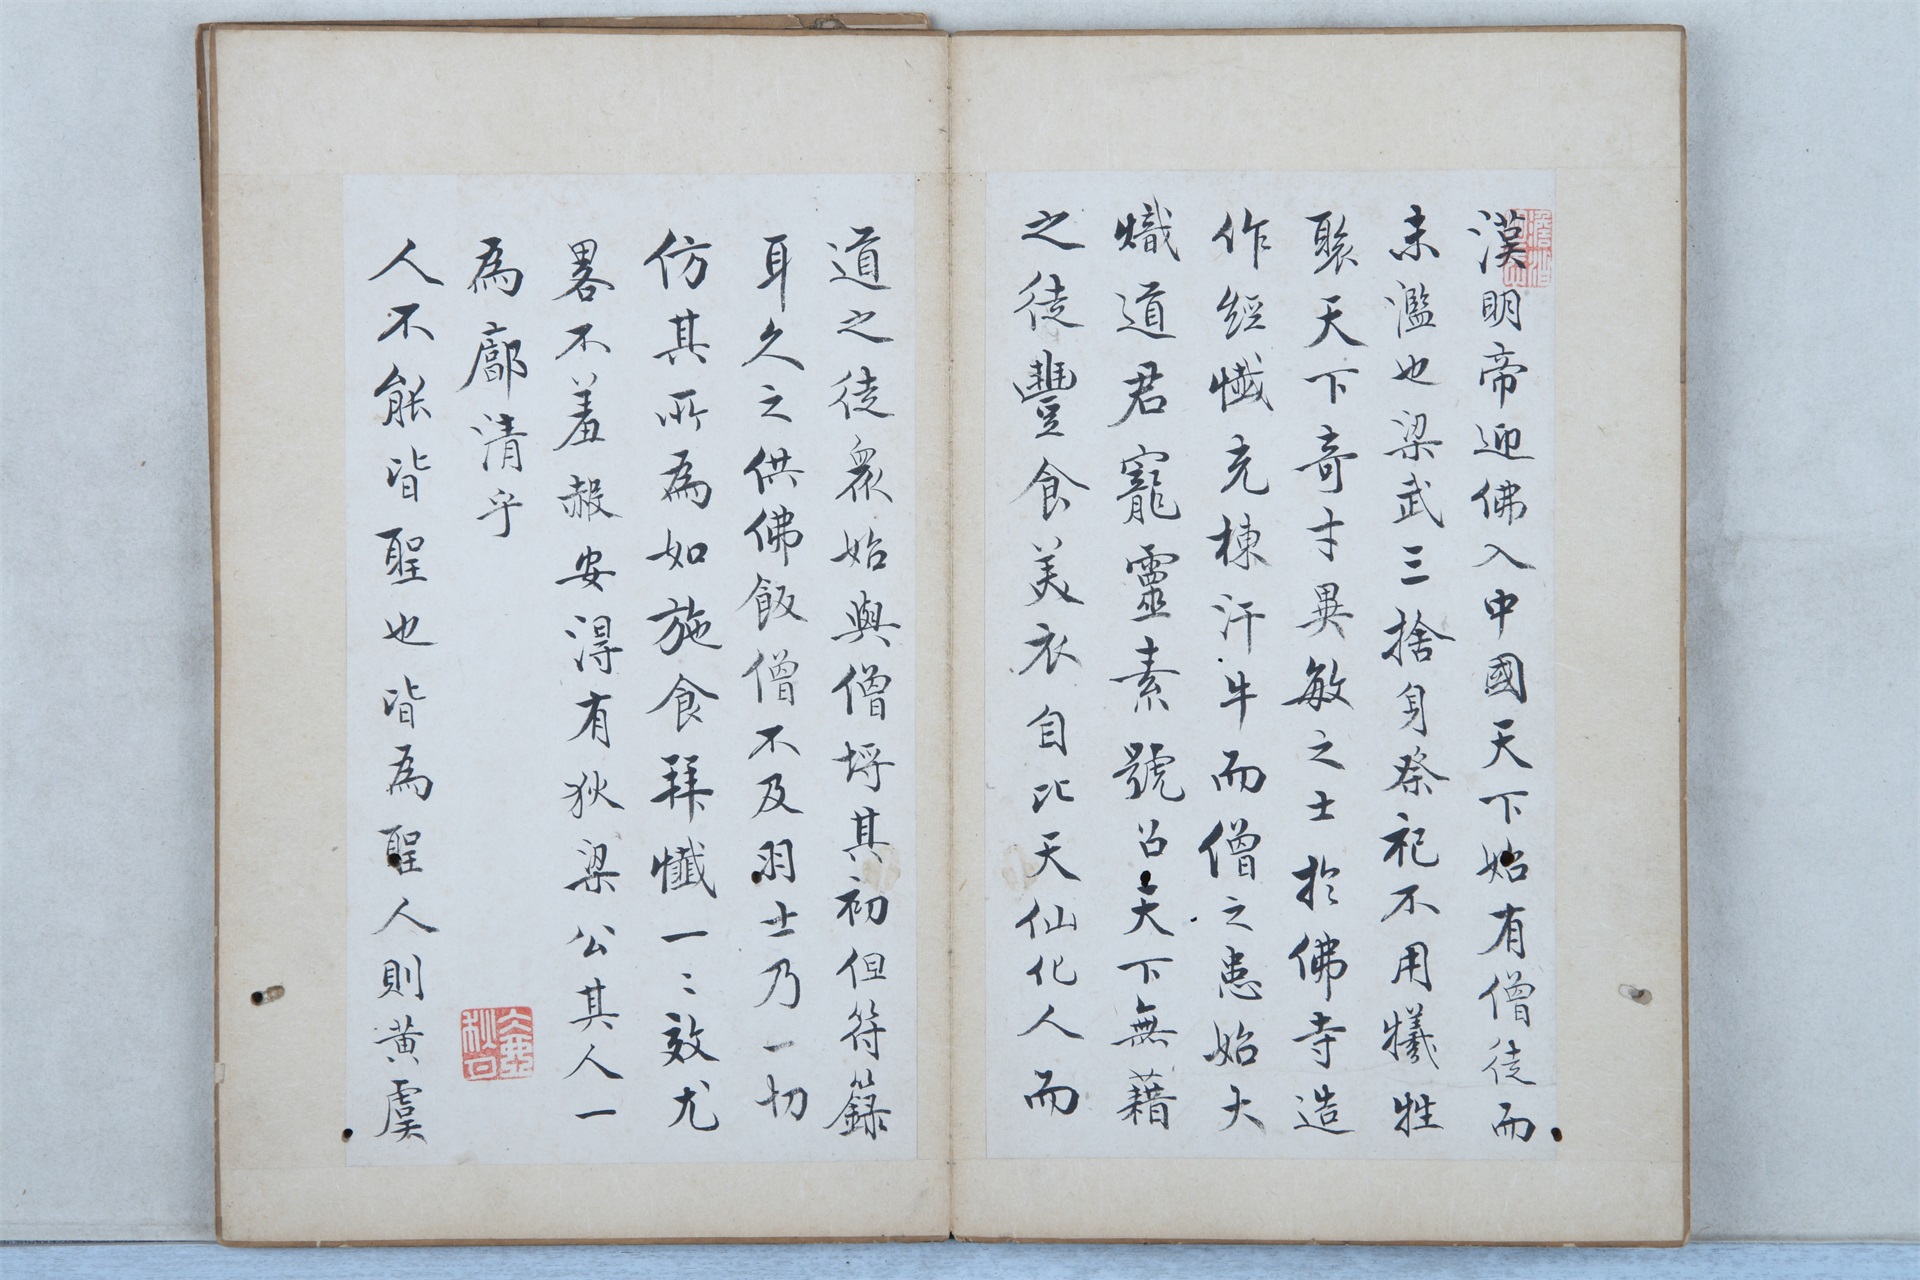 漢明帝迎佛入中國天下始有僧徒而
未濫也梁武三捨身祭祀不用犧牲
聚天下奇才異敏之士於佛寺造
作經懺充棟汗牛而僧之患始大
熾道君寵靈素號召天下無藉
之徒豐食美衣自比天仙化人而
道之徒衆始與僧埒其初但符籙
耳久之供佛飯僧不及羽士乃一切
仿其所為如施食拜懺一〻效尤
畧不羞赧安得有狄梁公其人一
為廓清乎
人不能皆聖也皆為聖人則黄虞